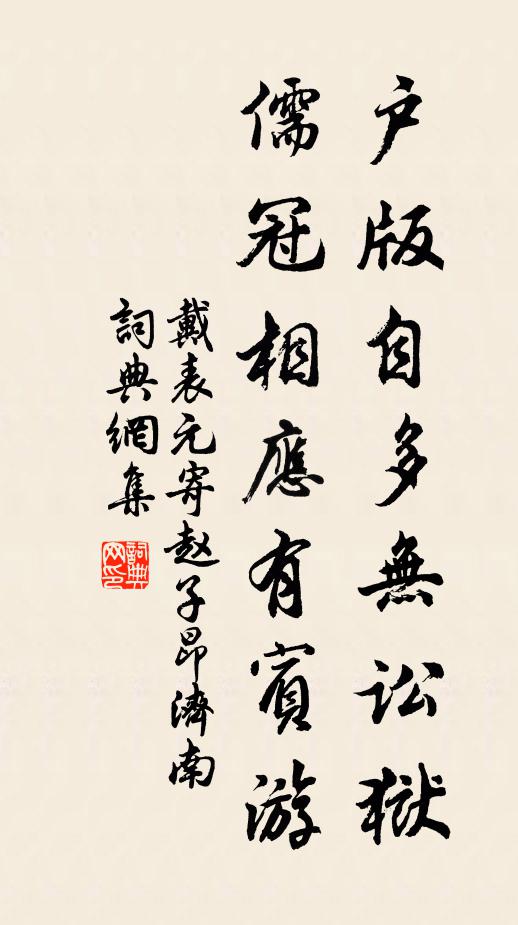 户版自多無訟獄
儒冠相應有賓游
戴表元寄赵子昂濟南
詞典網集
詞典
网印